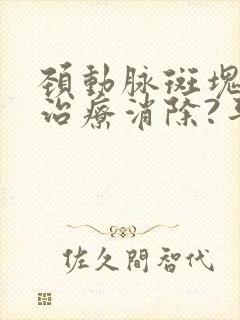 頚動脉斑塊
治療消除?
佐久間智代